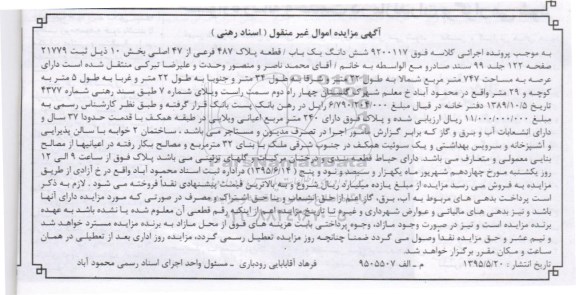 آگهی مزایده اموال غیر منقول ( اسناد رهنی )
به موجب پرونده اجرائی کلاسه فوق ۹۲۰۰۱۱۷ شش دانگ یک باب / قطعه پلاک ۴۸۷ فرعی از ۴۷ اصلی بخش ۱۰ ذیل ثبت ۲۱۷۷۹
صفحه ۱۲۲ جلد ۹۹ سند صادر و مع الواسطه به خانم / آقای محمد ناصر و منصور وحدت و علیرضا تبرکی منتقل شده است دارای
عرصه به مساحت ۷۴۷ متر مربع شمالا به طول متر و شرقا به طول ۳۴ متر و جنوبا به طول ۲۲ متر و غربا به طول ۵ متر به
کوچه و ۲۹ متر واقع در محمود آباد خ معلم شهرک گلستان چهار راه دوم سمت راست ویلای شماره ۷ طبق سند رهنی شماره ۴۳۷۷
تاریخ ۱۳۸۹/۱۰/۵ دفتر خانه در قبال مبلغ ریال در رهن بانک پست بانک قرار گرفته و طبق نظر کارشناس رسمی به
مبلغ ۱۱/۰۰۰/۰۰۰/۰۰۰ ریال ارزیابی شده و پلاک فوق دارای ۲۴۰ متر مربع اعیانی ویلایی در طبقه همکف با قدمت حدودا ۳۷ سال و
دارای انشعابات آب و برق و گاز که برابر گزارش مامور اجرا در تصرف مدیون و مستاجر می باشد . ساختمان ۲ خوابه با سالن پذیرایی
و آشپزخانه و سرویس بهداشتی و یک سوئیت همکف در جنوب شرقی ملک با بنای ۳۲ مترمربع و مصالح بکار رفته در اعیانیها از مصالح
بنایی معمولی و متعارف می باشد. دارای حیاط درختان مرکبات و گلهای تزئینی می باشد پلاک فوق از ساعت ۹ الی ۱۲
روز یکشنبه مورخ چهاردهم شهریور ماه یکهزار و سیصد و نود و پنج (۱۳۹۵/۶/۱۴) در اداره ثبت اسناد محمود آباد واقع در خ آزادی از طریق
مزایده به فروش می رسد مزایده از مبلغ یازده میلیارد ریال شروع و به بالاترین قیمت پیشنهادی نقداً فروخته می شود . لازم به ذکر
است پرداخت بدهی های مربوط به آب، برق، گاز اعم از حق انشعاب و یا حق اشتراک و مصرف در صورتی که مورد مزایده دارای آنها
باشد و نیز بدهی های مالیاتی و عوارض شهرداری و غیره تا تاریخ مزایده اعم از اینکه رقم قطعی آن معلوم شده یا نشده باشد به عهده
برنده مزایده است و نیز در صورت وجود مازاد، وجوه پرداختی بابت هزینه های فوق از محل مازاد به برنده مزایده مسترد خواهد شد
و نیم عشر و حق مزایده نقداً وصول می گردد ضمناً چنانچه روز مزایده تعطیل رسمی گردد، مزایده روز اداری بعد از تعطیلی در همان
ساعت و مکان مقرر برگزار خواهد شد.
تاریخ انتشار : ۱۳۹۵/۵/۲۰ م ـ الف ۹۵۰۵۵۰۷ فرهاد آقابابایی رودباری ـ مسئول واحد اجرای اسناد رسمی محمود آباد